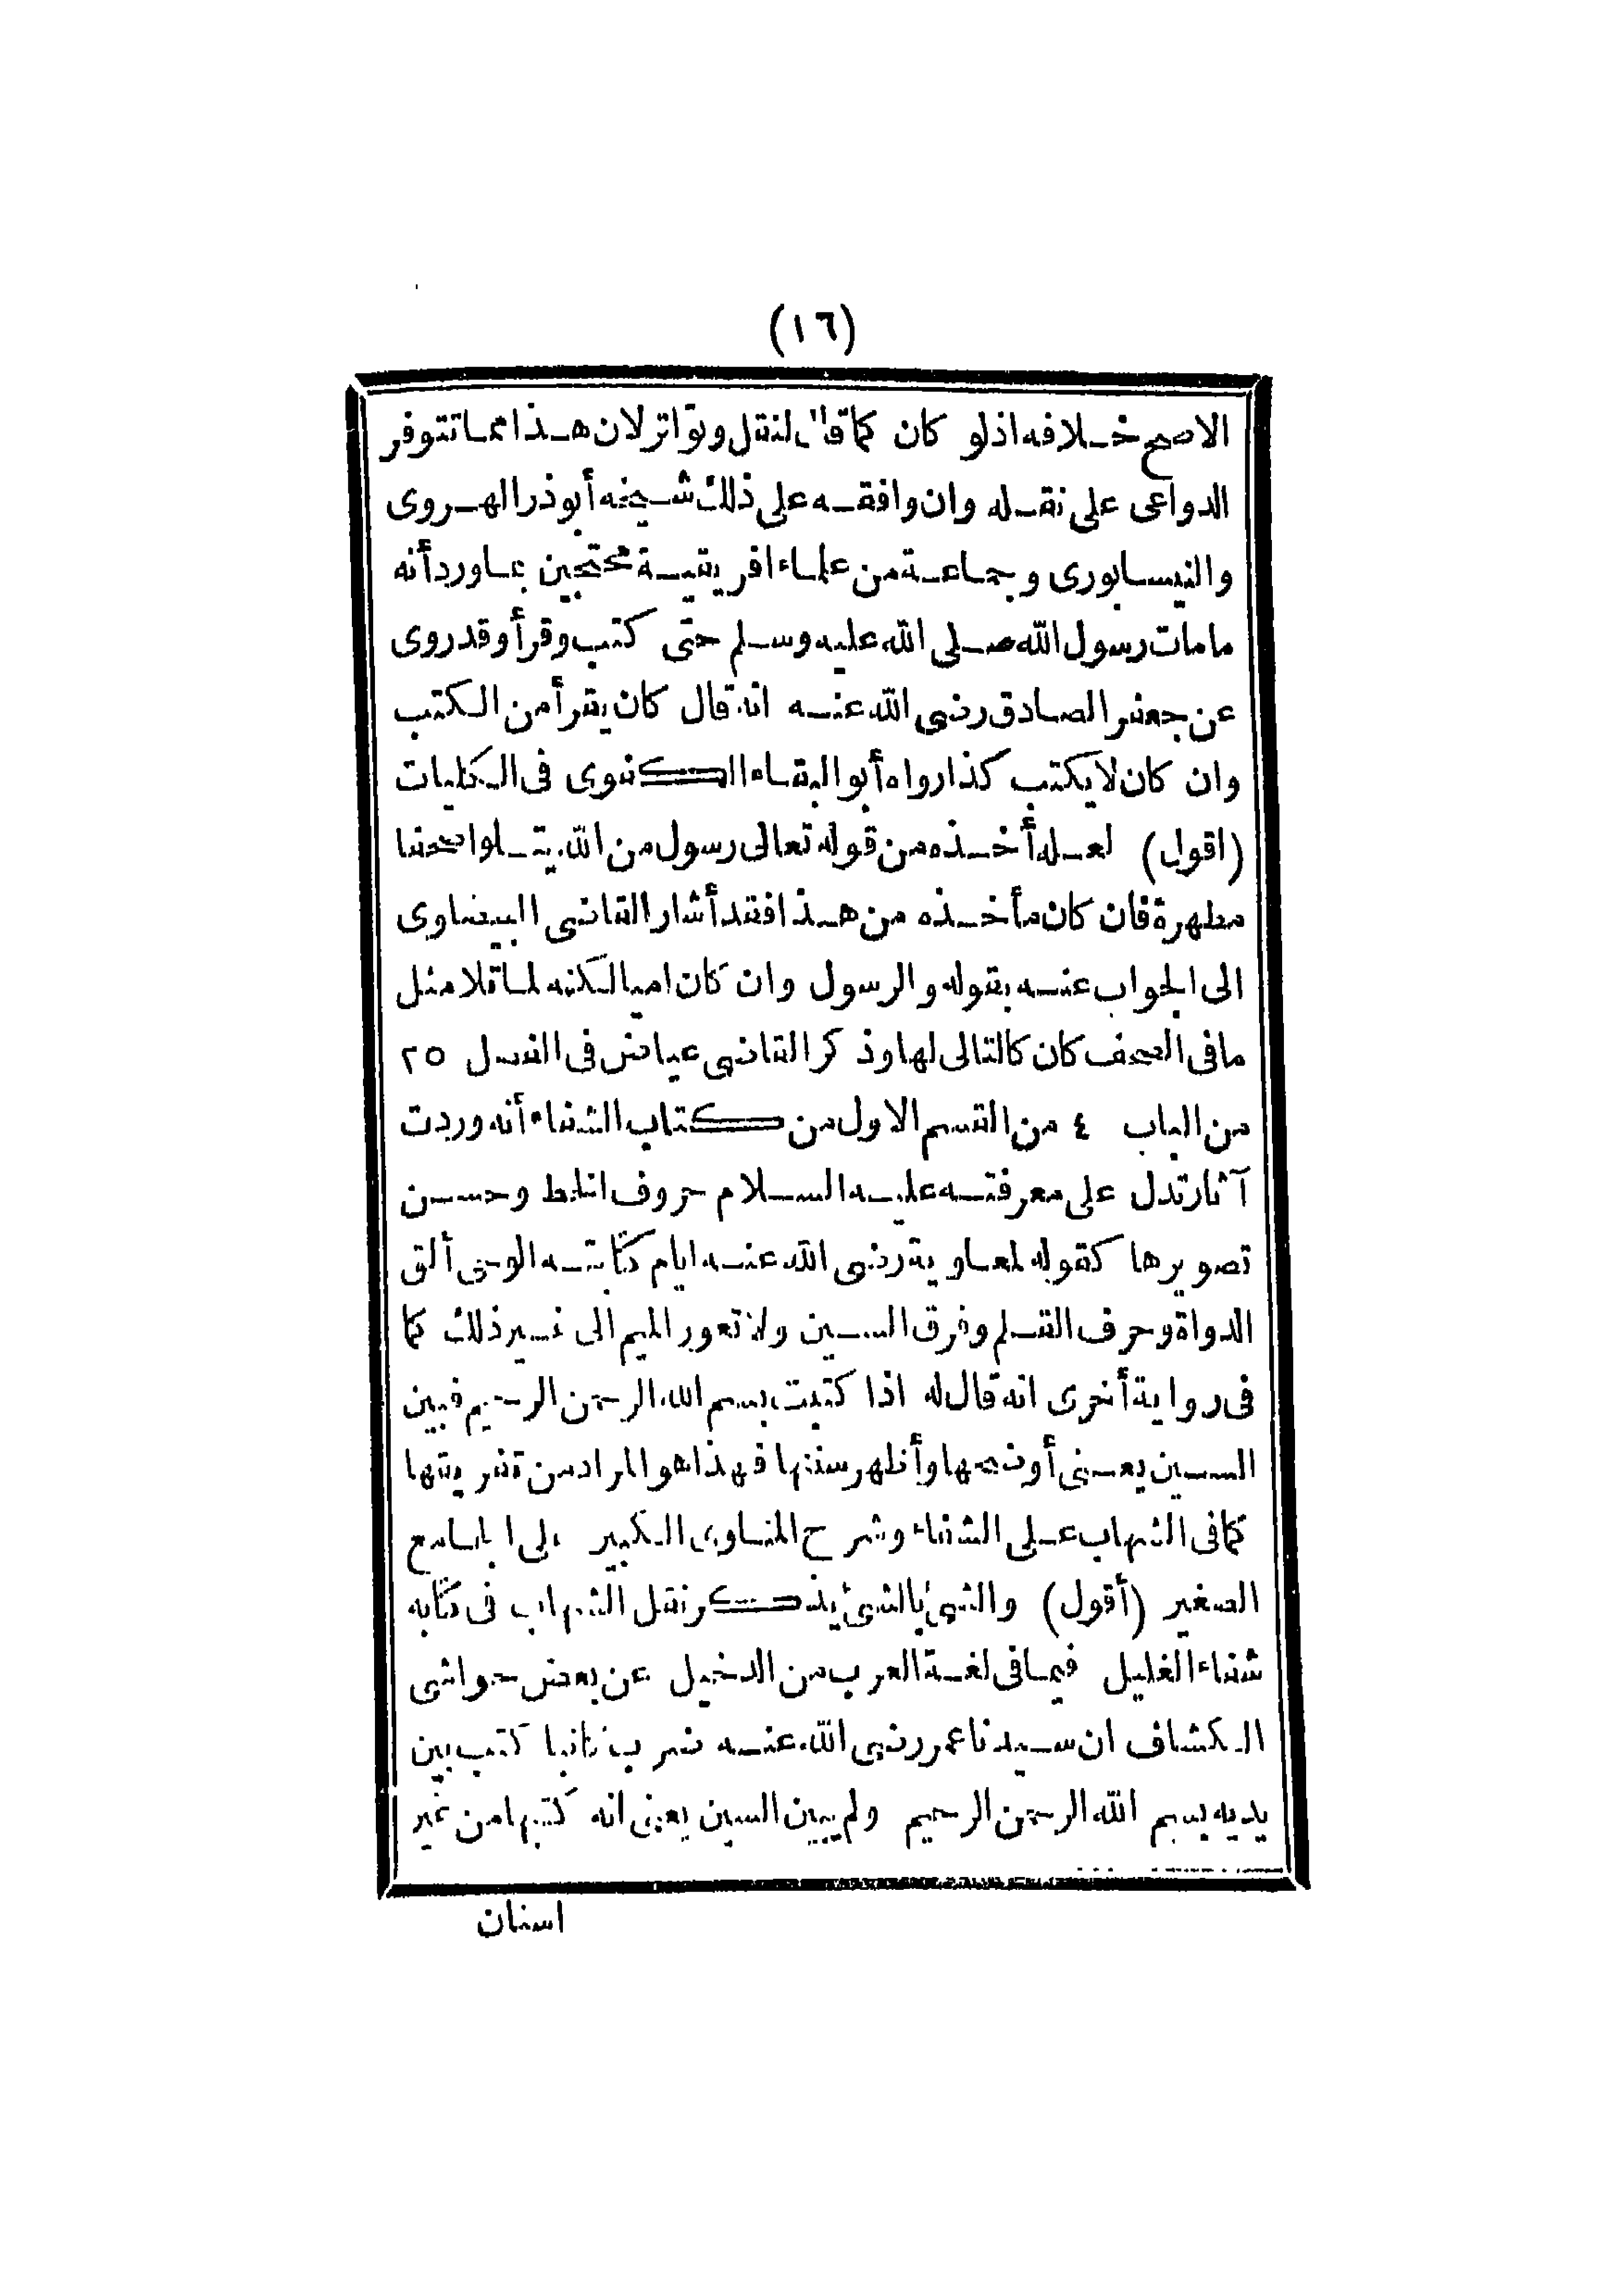 (١٦)
الاصح خلافه اذ لو كان كما قال لنقل وتواتر لان هذا مما تتوفر
الدواعى على نقله وان وافقه على ذلك شيخه أبو ذر الهروى
والنيسابورى وجماعة من علماء افريقية محتجين بما ورد أنه
ما مات رسول الله صلى الله عليه وسلم حتى كتب وقرأ وقد روى
عن جعفر الصادق رضى الله عنه انه قال كان يقرأ من الكتب
وان كان لا يكتب كذا رواه أبو البقاء الكفوى فى الكليات
(اقول) لعله أخذه من قوله تعالى رسول من الله يتلوا صحفا
مطهرة فان كان مأخذه من هذا فقد أشار القاضى البيضاوى
الى الجواب عنه بقوله والرسول وان كان اميا لكنه لما تلا مثل
ما فى الصحف كان كالتالى لها وذكر القاضى عياض فى الفصل ٢٥
من الباب ٤ من القسم الاول من كتاب الشفاء أنه وردت
آثار تدل على معرفته عليه السلام حروف الخط وحسن
تصويرها كقوله لمعاوية رضى الله عنه ايام كتابته الوحى ألق
الدواة وحرف القلم وفرق السين ولا تعور الميم الى غير ذلك كما
فى رواية أخرى انه قال له اذا كتبت بسم الله الرحمن الرحيم فبين
السين يعنى أوضحها وأظهر سننها فهذا هو المراد من تفريقها
كما فى الشهاب على الشفاء وشرح المناوى الكبير على الجامع
الصغير (أقول) والشئ بالشئ يذكر نقل الشهاب فى كتابه
شفاء الغليل فيما فى لغة العرب من الدخيل عن بعض حواشى
الكشاف ان سيدنا عمر رضى الله عنه ضرب كاتبا كتب بين
يديه بسم الله الرحمن الرحيم ولم يبين السين يعنى انه كتبها من غير
اسنان